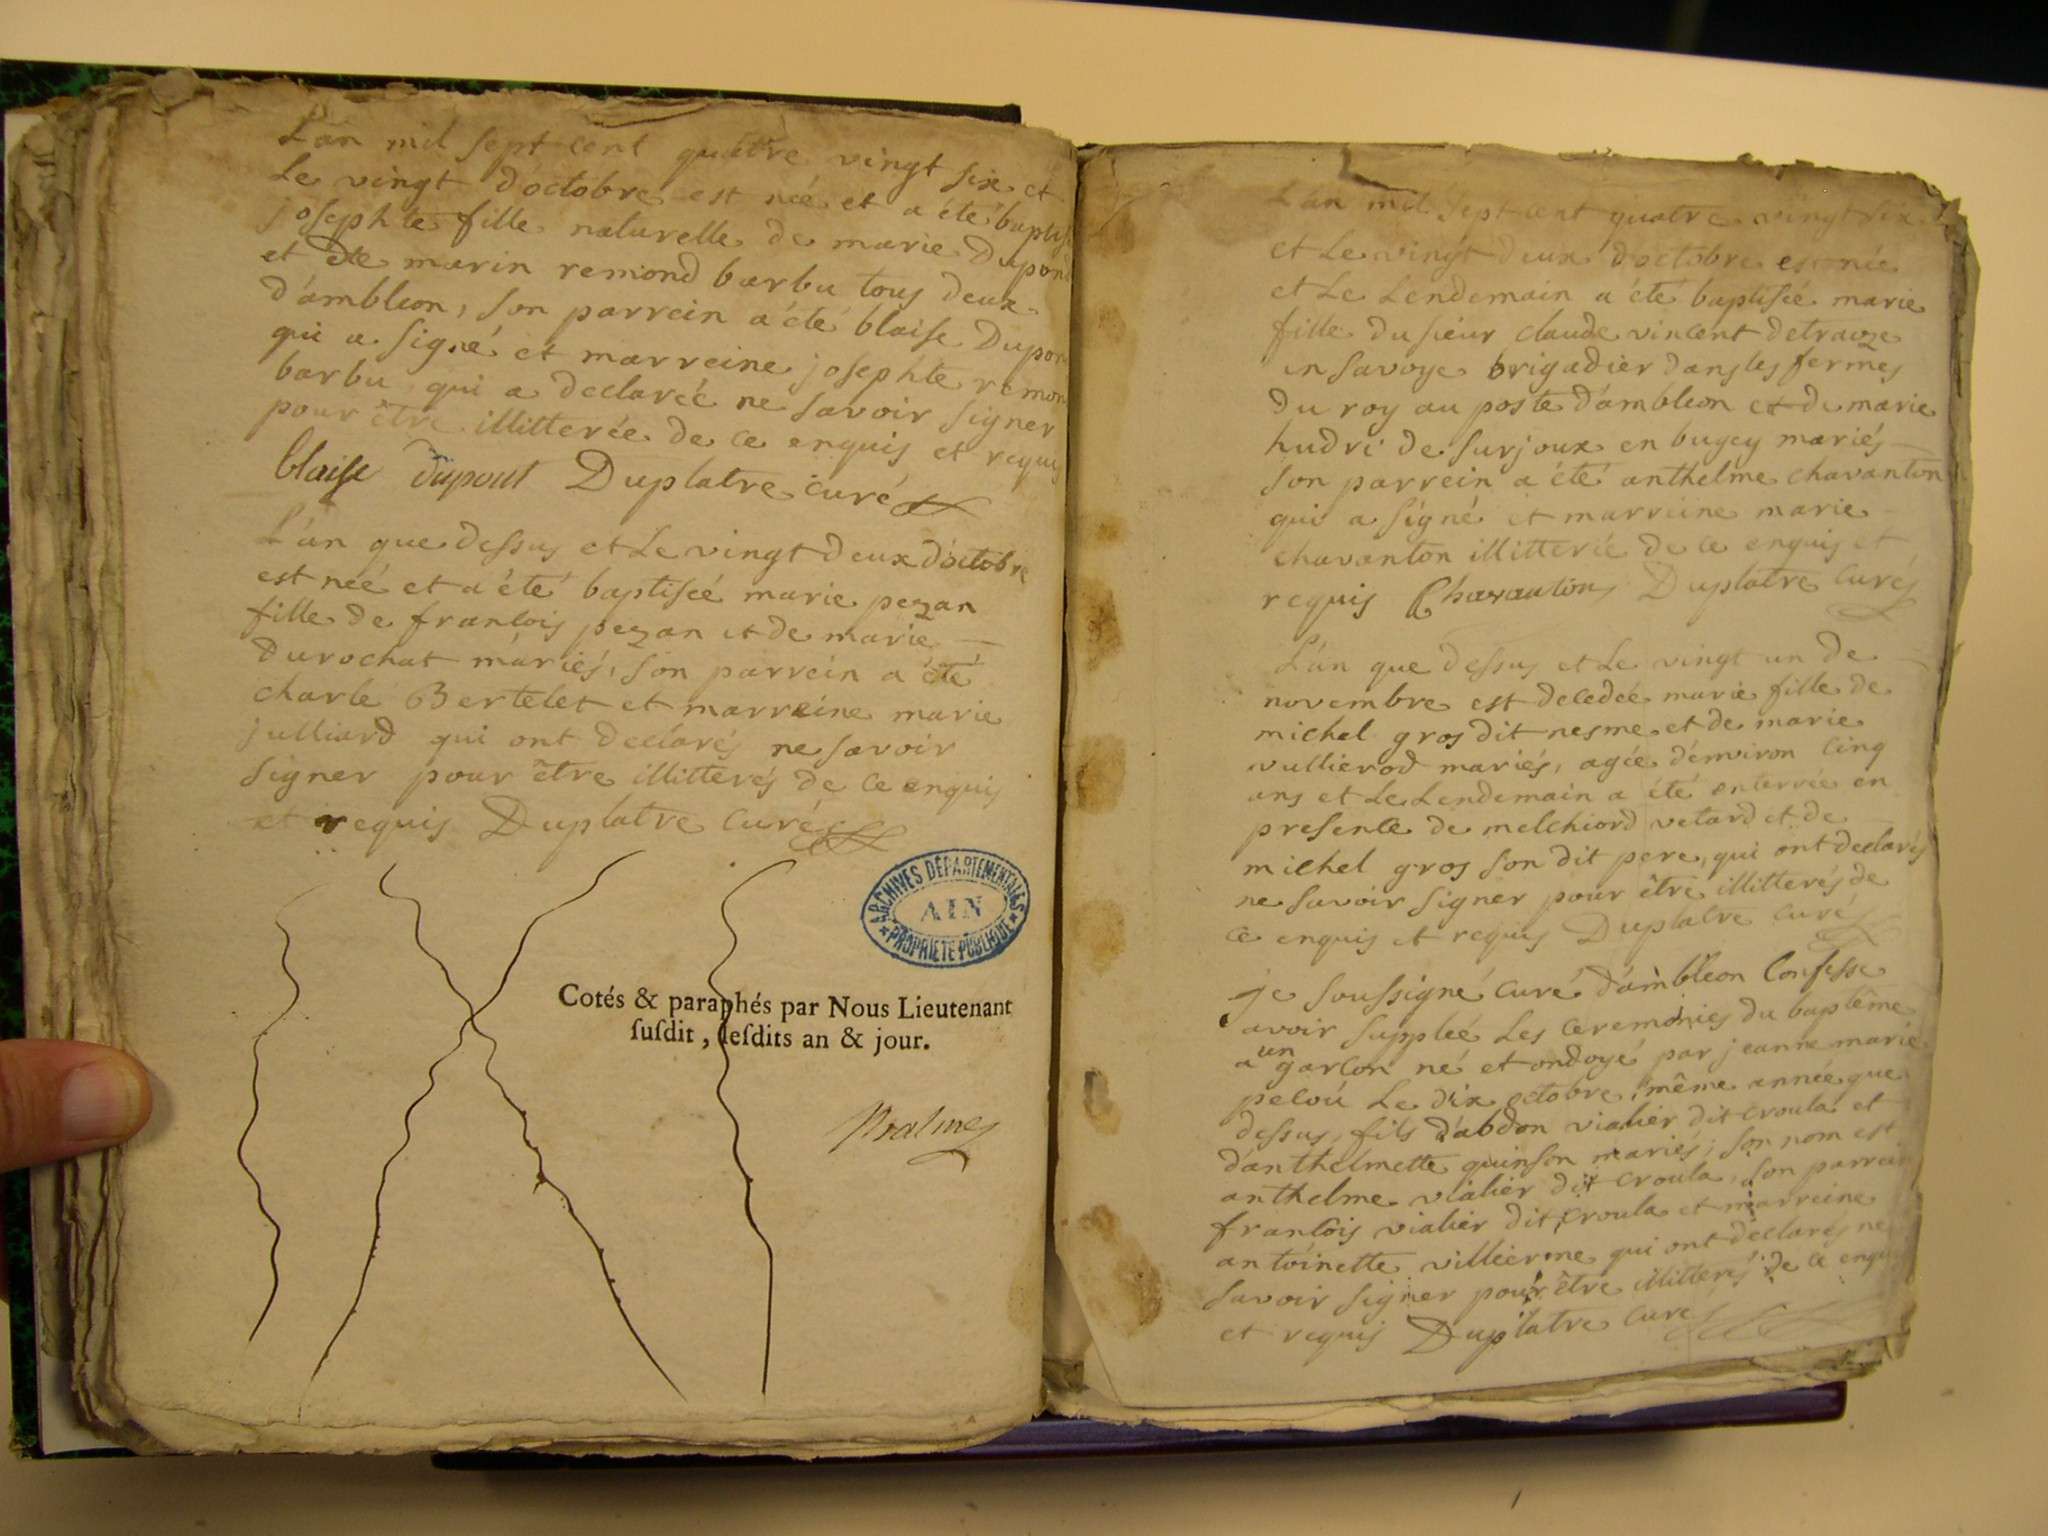 L'an mil sept cent quatre vingt six et
Le vingt d'octobre est née et a été baptisé
josephte fille naturelle de marie Dupond
et de marin remond barbu tous deux
d'ambleon, son parrein a été blaise Dupon
qui a signé et marreine josephte remon
barbu qui a declareé ne savoir signer
pour être illitterée de ce enquis et requis
blaise dupont Duplatre curé
L'an que dessus et Le vingt deux d'octobre
est neé et a été baptiseé marie pezan
fille de francois pezan et de marie
Durochat mariés, son parrein a été
charle Bertelet et marreine marie
julliard qui ont declarés ne savoir
signer pour être illitterés de ce enquis
et requis Duplatre curé
ARCHIVES DÉPARTEMENTALES
AIN
PROPRIÉTÉ PUBLIQUE
Cotés & paraphés par Nous Lieutenant
susdit, lesdits an & jour.
L'an mil sept cent quatre vingt six
et Le vingt deux d'octobre est née
et Le Lendemain a été baptiseé marie
fille du sieur claude vincent
en savoye brigadier dans les fermes
du roy au poste d'ambleon et de marie
hudri de surjoux en bugey mariés
son parrein a été anthelme chavanton
qui a signé et marreine marie
chavanton illitterée de ce enquis et
requis Chavanton Duplatre curé
L'an que dessus et Le vingt un de
novembre est decedeé marie fille de
michel gros dit nesme et de marie
vullierod mariés, agée d'environ cinq
ans et Le Lendemain a été enterrée en
presence de melchiord vetard et de
michel gros son dit pere, qui ont declarés
ne savoir signer pour être illitterés de
ce enquis et requis Duplatre curé
je soussigné curé d'ambleon confesse
avoir suppleé Les ceremonies du baptême
a un garcon né et ondoyé par jeanne marie
pecou Le dix octobre, même année que
dessus, fils d'abdon vialier dit croula et
d'anthelmette quinson mariés; son nom est
anthelme vialier dit croula, son parrein
francois vialier dit croula et marreine
antoinette villierme qui ont declarés ne
savoir signer pour être illitterés de ce enquis
et requis Duplatre curé